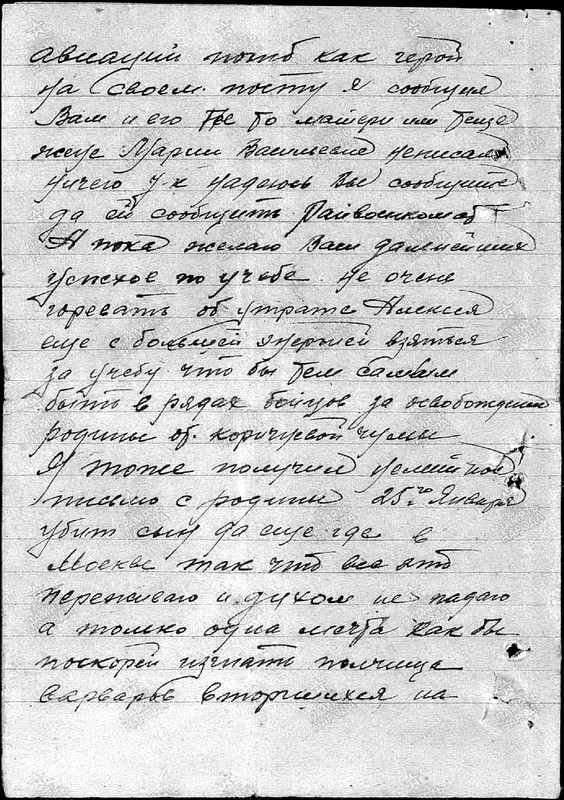 авиации погиб как герой
на своем посту я сообщил
Вам и его то матери или теще
Марии Васильевне неписал
ничего т-к надеюсь Вы сообщите
да ей сообщить Райвоенкомат
А пока желаю Вам дальнейших
успехов по учебе не очень
горевать об утрате Алексея
еще с большей энергией взяться
за учебу что бы тем самым
быть в рядах бойцов за освобождение
родины от коричневой чумы
Я тоже получил
письмо с родины 25го Января
убит сын да еще где в
Москве так что все это
переживаю и духом не падаю
а только одна мечта как бы
поскорей изгнать полчища
варваров вторшихся на